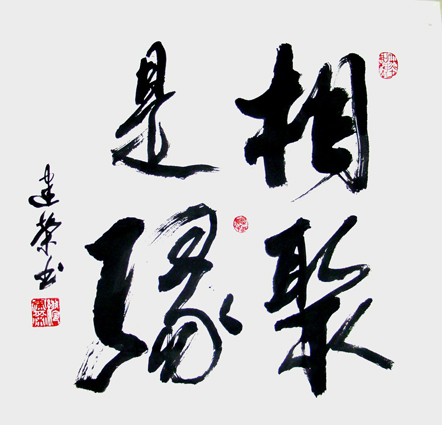 相聚
是缘
建荣书